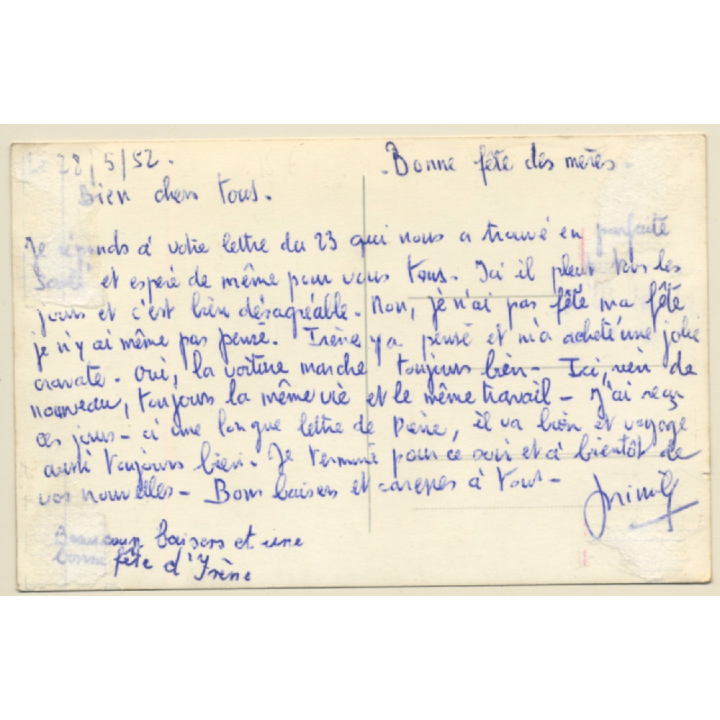 Le 28/5/52.
Bonne fête des mères.
Bien chers tous.
Je réponds à votre lettre du 23 qui nous a trouvé en parfaite
santé et espère de même pour vous tous. Ici il pleut tous les
jours et c'est bien désagréable. Non, je n'ai pas fêté ma fête
je n'y ai même pas pensé. Irène y a pensé et m'a acheté une jolie
cravate. Oui, la voiture marche toujours bien - Ici, rien de
nouveau, toujours la même vie et le même travail - J'ai reçu
ces jours-ci une longue lettre de Pierre, il va bien et voyage
aussi toujours bien. Je termine pour ce soir et à bientôt de
vos nouvelles - Bons baisers et caresses à tous -
Beaucoup baisers et une
bonne fête d'Irène